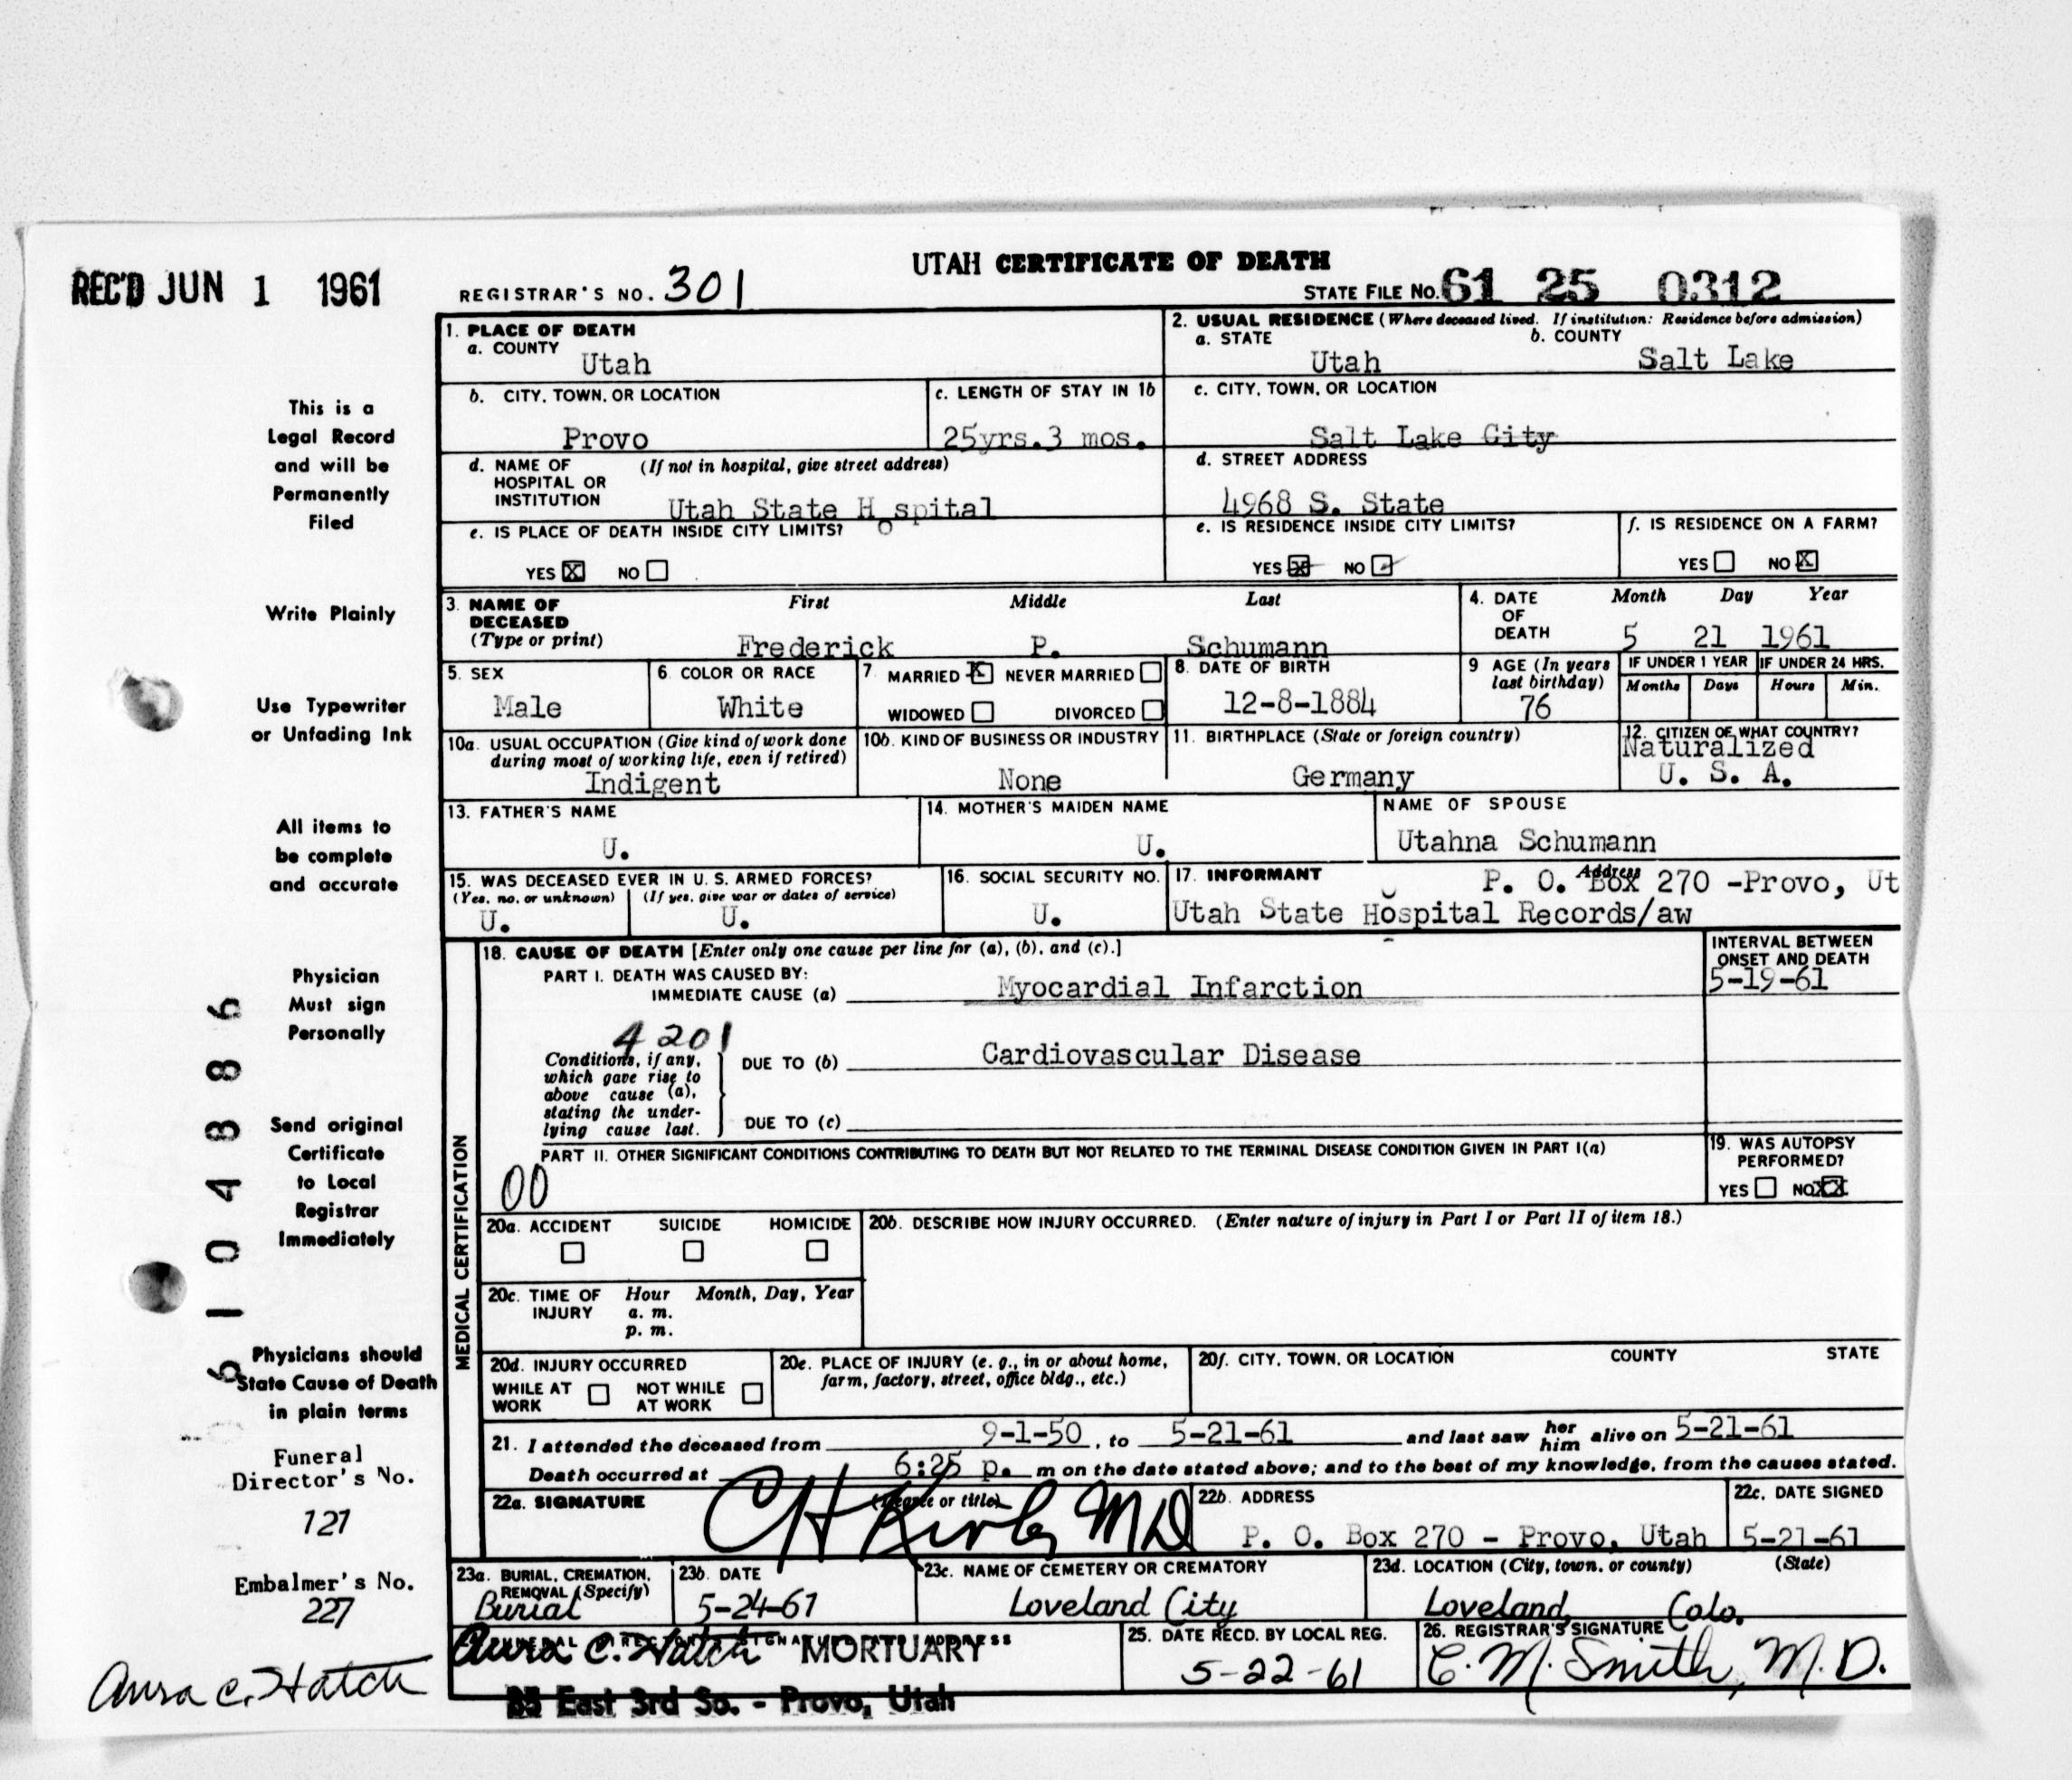 UTAH CERTIFICATE OF DEATH
REC'D JUN 1 1961
REGISTRAR'S NO. 301
STATE FILE NO. 61 25 0312
1. PLACE OF DEATH
a. COUNTY
Utah
2. USUAL RESIDENCE (Where deceased lived. If institution: Residence before admission)
a. STATE b. COUNTY
Utah Salt Lake
b. CITY, TOWN, OR LOCATION
Provo
c. LENGTH OF STAY IN 1b
25yrs.3 mos.
c. CITY, TOWN, OR LOCATION
Salt Lake City
d. NAME OF (If not in hospital, give street address)
HOSPITAL OR
INSTITUTION
Utah State Hospital
d. STREET ADDRESS
4968 S. State
e. IS PLACE OF DEATH INSIDE CITY LIMITS?
YES X NO
e. IS RESIDENCE INSIDE CITY LIMITS?
YES X NO
f. IS RESIDENCE ON A FARM?
YES NO X
3. NAME OF DECEASED
(Type or print)
First Middle Last
Frederick P. Schumann
4. DATE OF DEATH
Month Day Year
5 21 1961
5. SEX
Male
6. COLOR OR RACE
White
7. MARRIED X NEVER MARRIED
WIDOWED DIVORCED
8. DATE OF BIRTH
12-8-1884
9 AGE (In years last birthday)
76
IF UNDER 1 YEAR IF UNDER 24 HRS.
Months Days Hours Min.
10a. USUAL OCCUPATION (Give kind of work done
during most of working life, even if retired)
Indigent
10b. KIND OF BUSINESS OR INDUSTRY
None
11. BIRTHPLACE (State or foreign country)
Germany
12. CITIZEN OF WHAT COUNTRY?
Naturalized
U. S. A.
13. FATHER'S NAME
U.
14. MOTHER'S MAIDEN NAME
U.
NAME OF SPOUSE
Utahna Schumann
15. WAS DECEASED EVER IN U. S. ARMED FORCES?
(Yes, no, or unknown) (If yes, give war or dates of service)
U. U.
16. SOCIAL SECURITY NO.
U.
17. INFORMANT Address
P. O. Box 270 -Provo, Ut
Utah State Hospital Records/aw
MEDICAL CERTIFICATION
18. CAUSE OF DEATH [Enter only one cause per line for (a), (b), and (c).]
PART I. DEATH WAS CAUSED BY:
IMMEDIATE CAUSE (a) Myocardial Infarction
INTERVAL BETWEEN
ONSET AND DEATH
5-19-61
4201
Conditions, if any,
which gave rise to
above cause (a),
stating the under-
lying cause last.
DUE TO (b) Cardiovascular Disease
DUE TO (c)
PART II. OTHER SIGNIFICANT CONDITIONS CONTRIBUTING TO DEATH BUT NOT RELATED TO THE TERMINAL DISEASE CONDITION GIVEN IN PART I(a)
00
19. WAS AUTOPSY
PERFORMED?
YES NO XX
20a. ACCIDENT SUICIDE HOMICIDE
20b. DESCRIBE HOW INJURY OCCURRED. (Enter nature of injury in Part I or Part II of item 18.)
20c. TIME OF INJURY
Hour Month, Day, Year
a. m.
p. m.
20d. INJURY OCCURRED
WHILE AT WORK NOT WHILE AT WORK
20e. PLACE OF INJURY (e. g., in or about home,
farm, factory, street, office bldg., etc.)
20f. CITY, TOWN, OR LOCATION COUNTY STATE
21. I attended the deceased from 9-1-50, to 5-21-61 and last saw her him alive on 5-21-61
Death occurred at 6:25 p. m on the date stated above; and to the best of my knowledge, from the causes stated.
22a. SIGNATURE (Degree or title)
CH Kirby MD
22b. ADDRESS
P. O. Box 270 - Provo, Utah
22c. DATE SIGNED
5-21-61
23a. BURIAL, CREMATION,
REMOVAL (Specify)
Burial
23b. DATE
5-24-61
23c. NAME OF CEMETERY OR CREMATORY
Loveland City
23d. LOCATION (City, town, or county) (State)
Loveland, Colo.
Aura C. Hatch MORTUARY
85 East 3rd So. - Provo, Utah
25. DATE RECD. BY LOCAL REG.
5-22-61
26. REGISTRAR'S SIGNATURE
C. M. Smith, M. D.
This is a
Legal Record
and will be
Permanently
Filed
Write Plainly
Use Typewriter
or Unfading Ink
All items to
be complete
and accurate
Physician
Must sign
Personally
Send original
Certificate
to Local
Registrar
Immediately
Physicians should
State Cause of Death
in plain terms
Funeral
Director's No.
121
Embalmer's No.
227
Aura C. Hatch